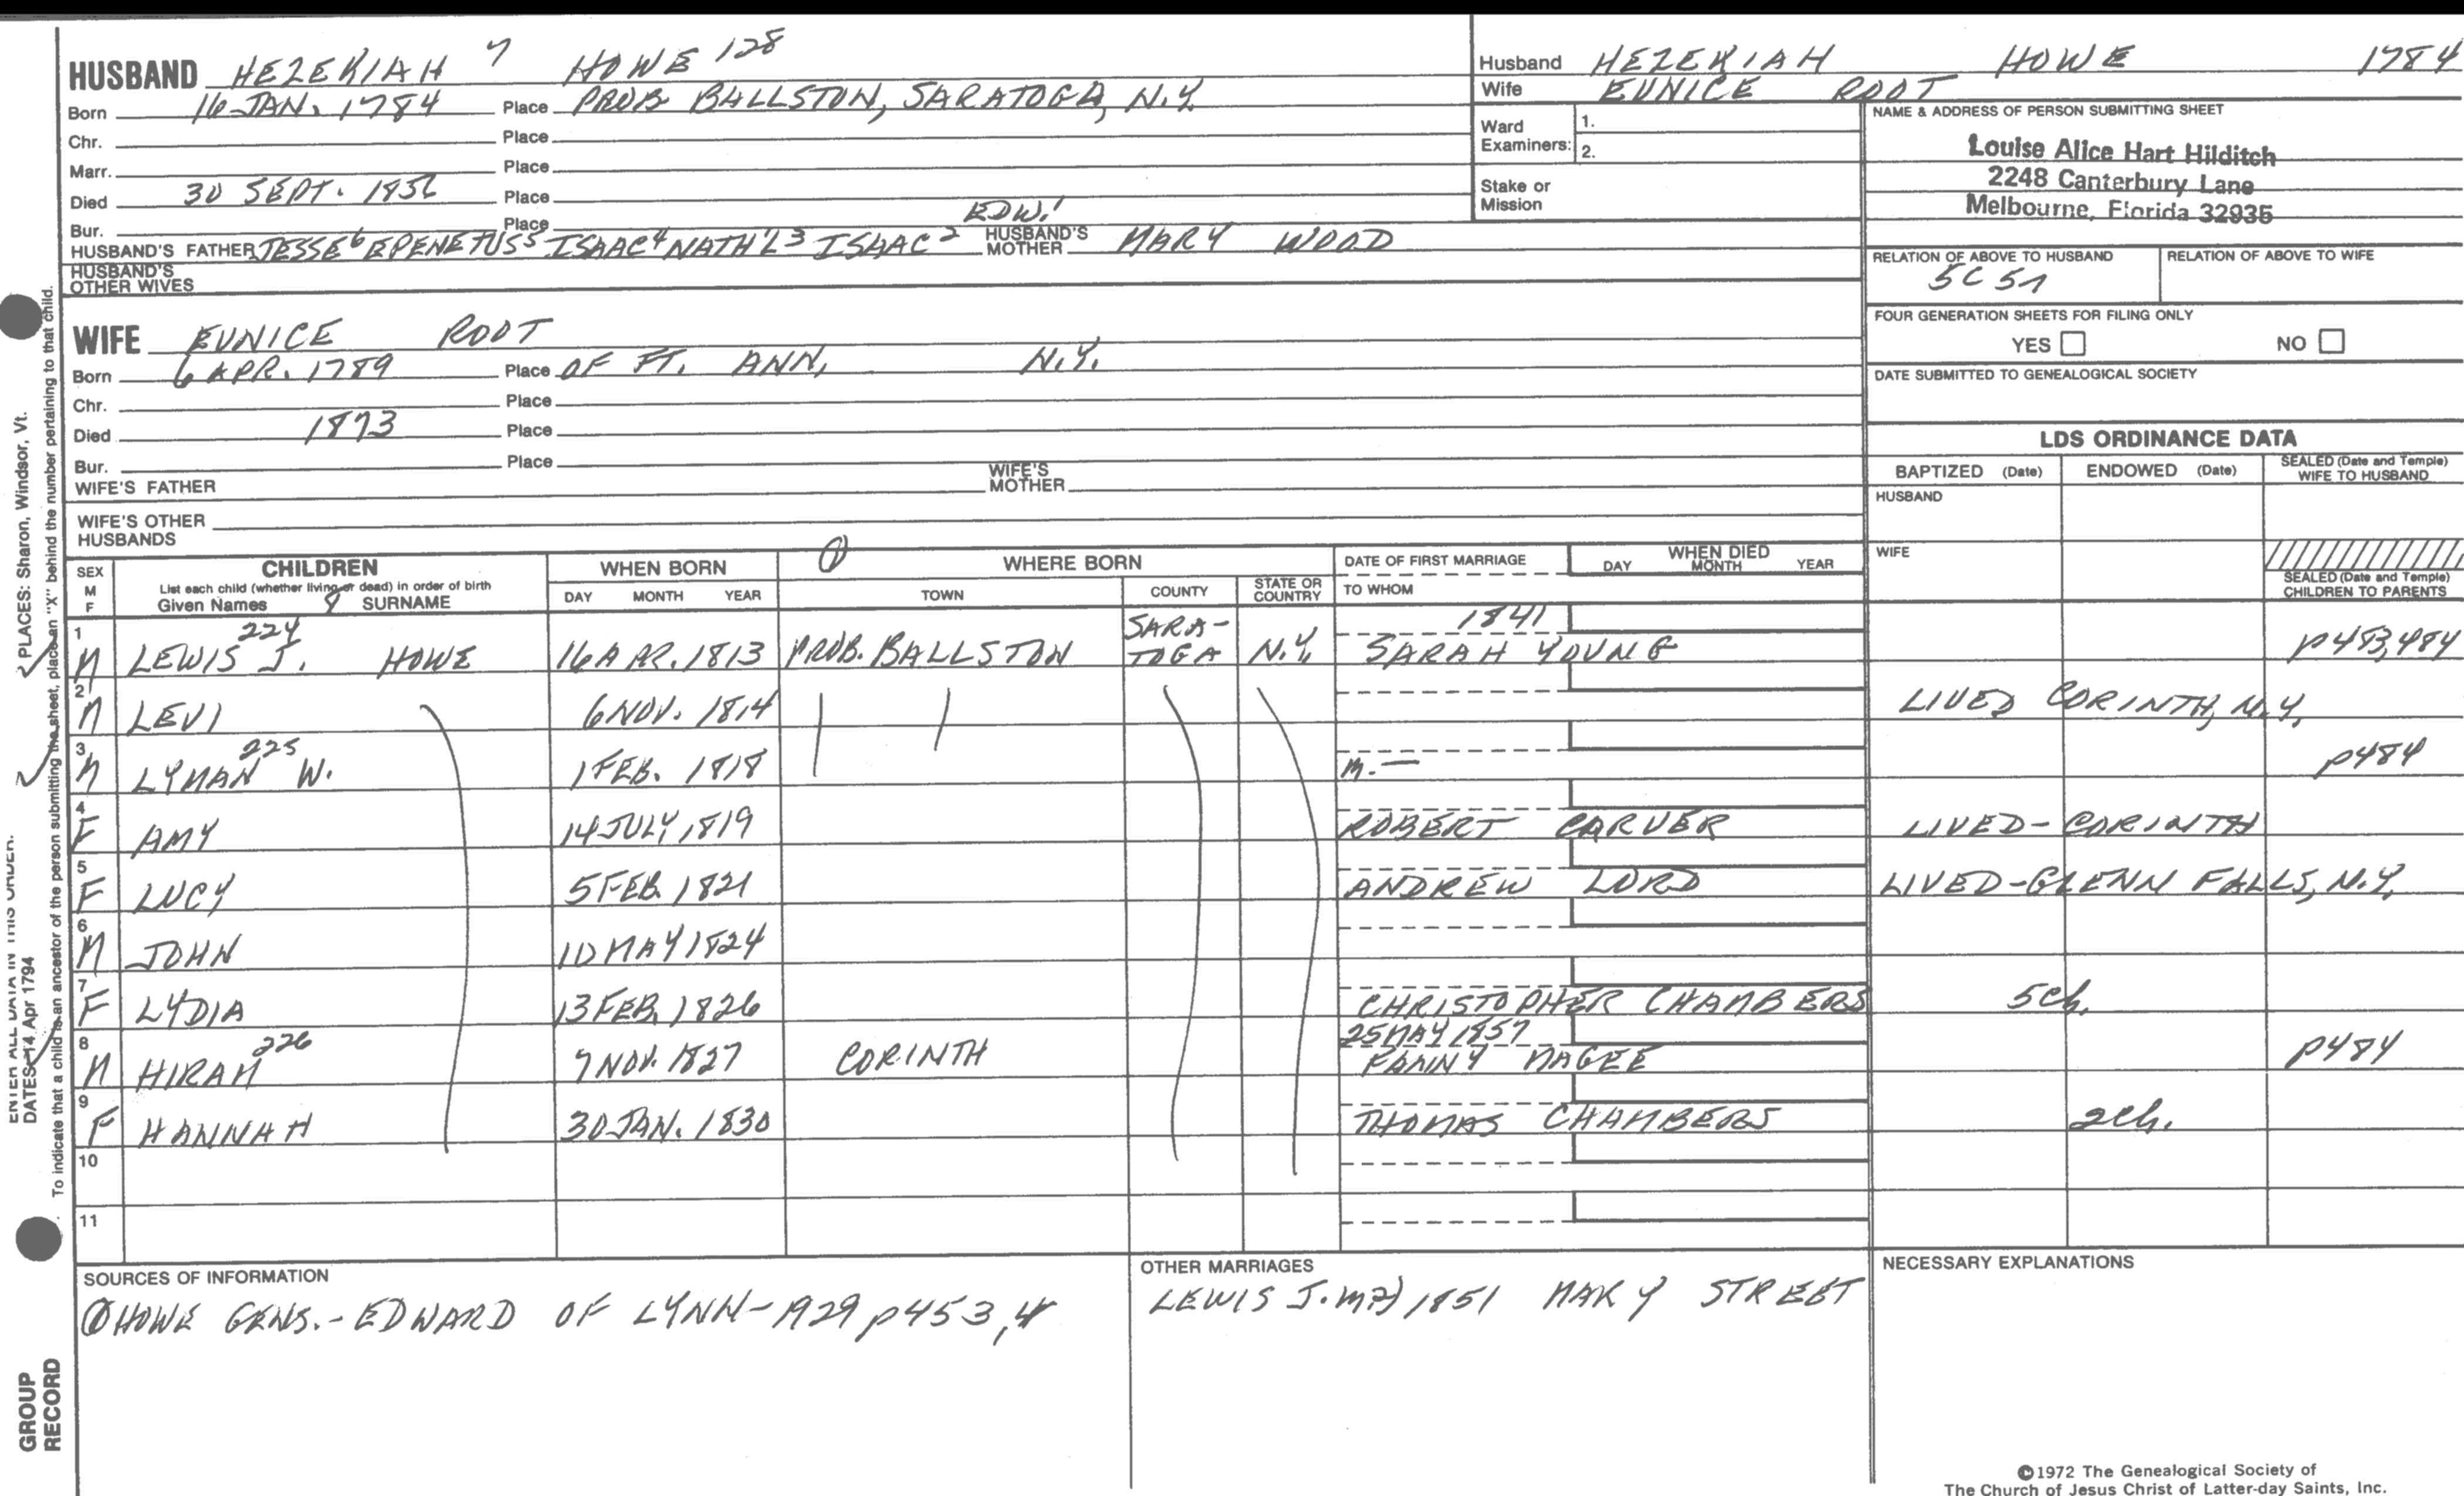 HUSBAND HEZEKIAH 7 HOWE 128
Born 16 JAN. 1784 Place PROB BALLSTON, SARATOGA, N.Y.
Chr. Place
Marr. Place
Died 30 SEPT. 1856 Place
Bur. Place
HUSBAND'S FATHER JESSE6 EPENETUS5 ISAAC4 NATH'L3 ISAAC2 EDW.1 HUSBAND'S MOTHER MARY WOOD
HUSBAND'S OTHER WIVES
WIFE EUNICE ROOT
Born 6 APR. 1789 Place OF FT. ANN, N.Y.
Chr. Place
Died 1873 Place
Bur. Place
WIFE'S FATHER WIFE'S MOTHER
WIFE'S OTHER HUSBANDS
Husband HEZEKIAH HOWE 1784
Wife EUNICE ROOT
Ward Examiners: 1.
2.
Stake or Mission
NAME & ADDRESS OF PERSON SUBMITTING SHEET
Louise Alice Hart Hilditch
2248 Canterbury Lane
Melbourne, Florida 32935
RELATION OF ABOVE TO HUSBAND RELATION OF ABOVE TO WIFE
5C 5r
FOUR GENERATION SHEETS FOR FILING ONLY
YES NO
DATE SUBMITTED TO GENEALOGICAL SOCIETY
LDS ORDINANCE DATA
BAPTIZED (Date) ENDOWED (Date) SEALED (Date and Temple) WIFE TO HUSBAND
HUSBAND
WIFE
SEALED (Date and Temple) CHILDREN TO PARENTS
SEX M F CHILDREN WHEN BORN WHERE BORN DATE OF FIRST MARRIAGE WHEN DIED
List each child (whether living or dead) in order of birth
Given Names SURNAME DAY MONTH YEAR TOWN COUNTY STATE OR COUNTRY TO WHOM DAY MONTH YEAR
1 M LEWIS J. 224 HOWE 16 APR. 1813 PROB. BALLSTON SARA-TOGA N.Y. 1841 SARAH YOUNG p483,484
2 M LEVI 6 NOV. 1814 LIVED CORINTH, N.Y.
3 M LYMAN 225 W. 1 FEB. 1818 m. — p484
4 F AMY 14 JULY, 1819 ROBERT CARVER LIVED - CORINTH
5 F LUCY 5 FEB. 1821 ANDREW LORD LIVED - GLENN FALLS, N.Y.
6 M JOHN 10 MAY 1824
7 F LYDIA 13 FEB. 1826 CHRISTOPHER CHAMBERS 5ch.
8 M HIRAM 226 7 NOV. 1827 CORINTH 25 MAY 1857 FANNY MAGEE p484
9 F HANNAH 30 JAN. 1830 THOMAS CHAMBERS 2ch.
10
11
SOURCES OF INFORMATION
HOWE GENS. - EDWARD OF LYNN - 1929 p453,4
OTHER MARRIAGES
LEWIS J. m2) 1851 MARY STREET
NECESSARY EXPLANATIONS
©1972 The Genealogical Society of
The Church of Jesus Christ of Latter-day Saints, Inc.
GROUP
RECORD
ENTER ALL DATA IN THIS ORDER.
DATES: 14 Apr 1794
PLACES: Sharon, Windsor, Vt.
To indicate that a child is an ancestor of the person submitting the sheet, place an "X" behind the number pertaining to that child.